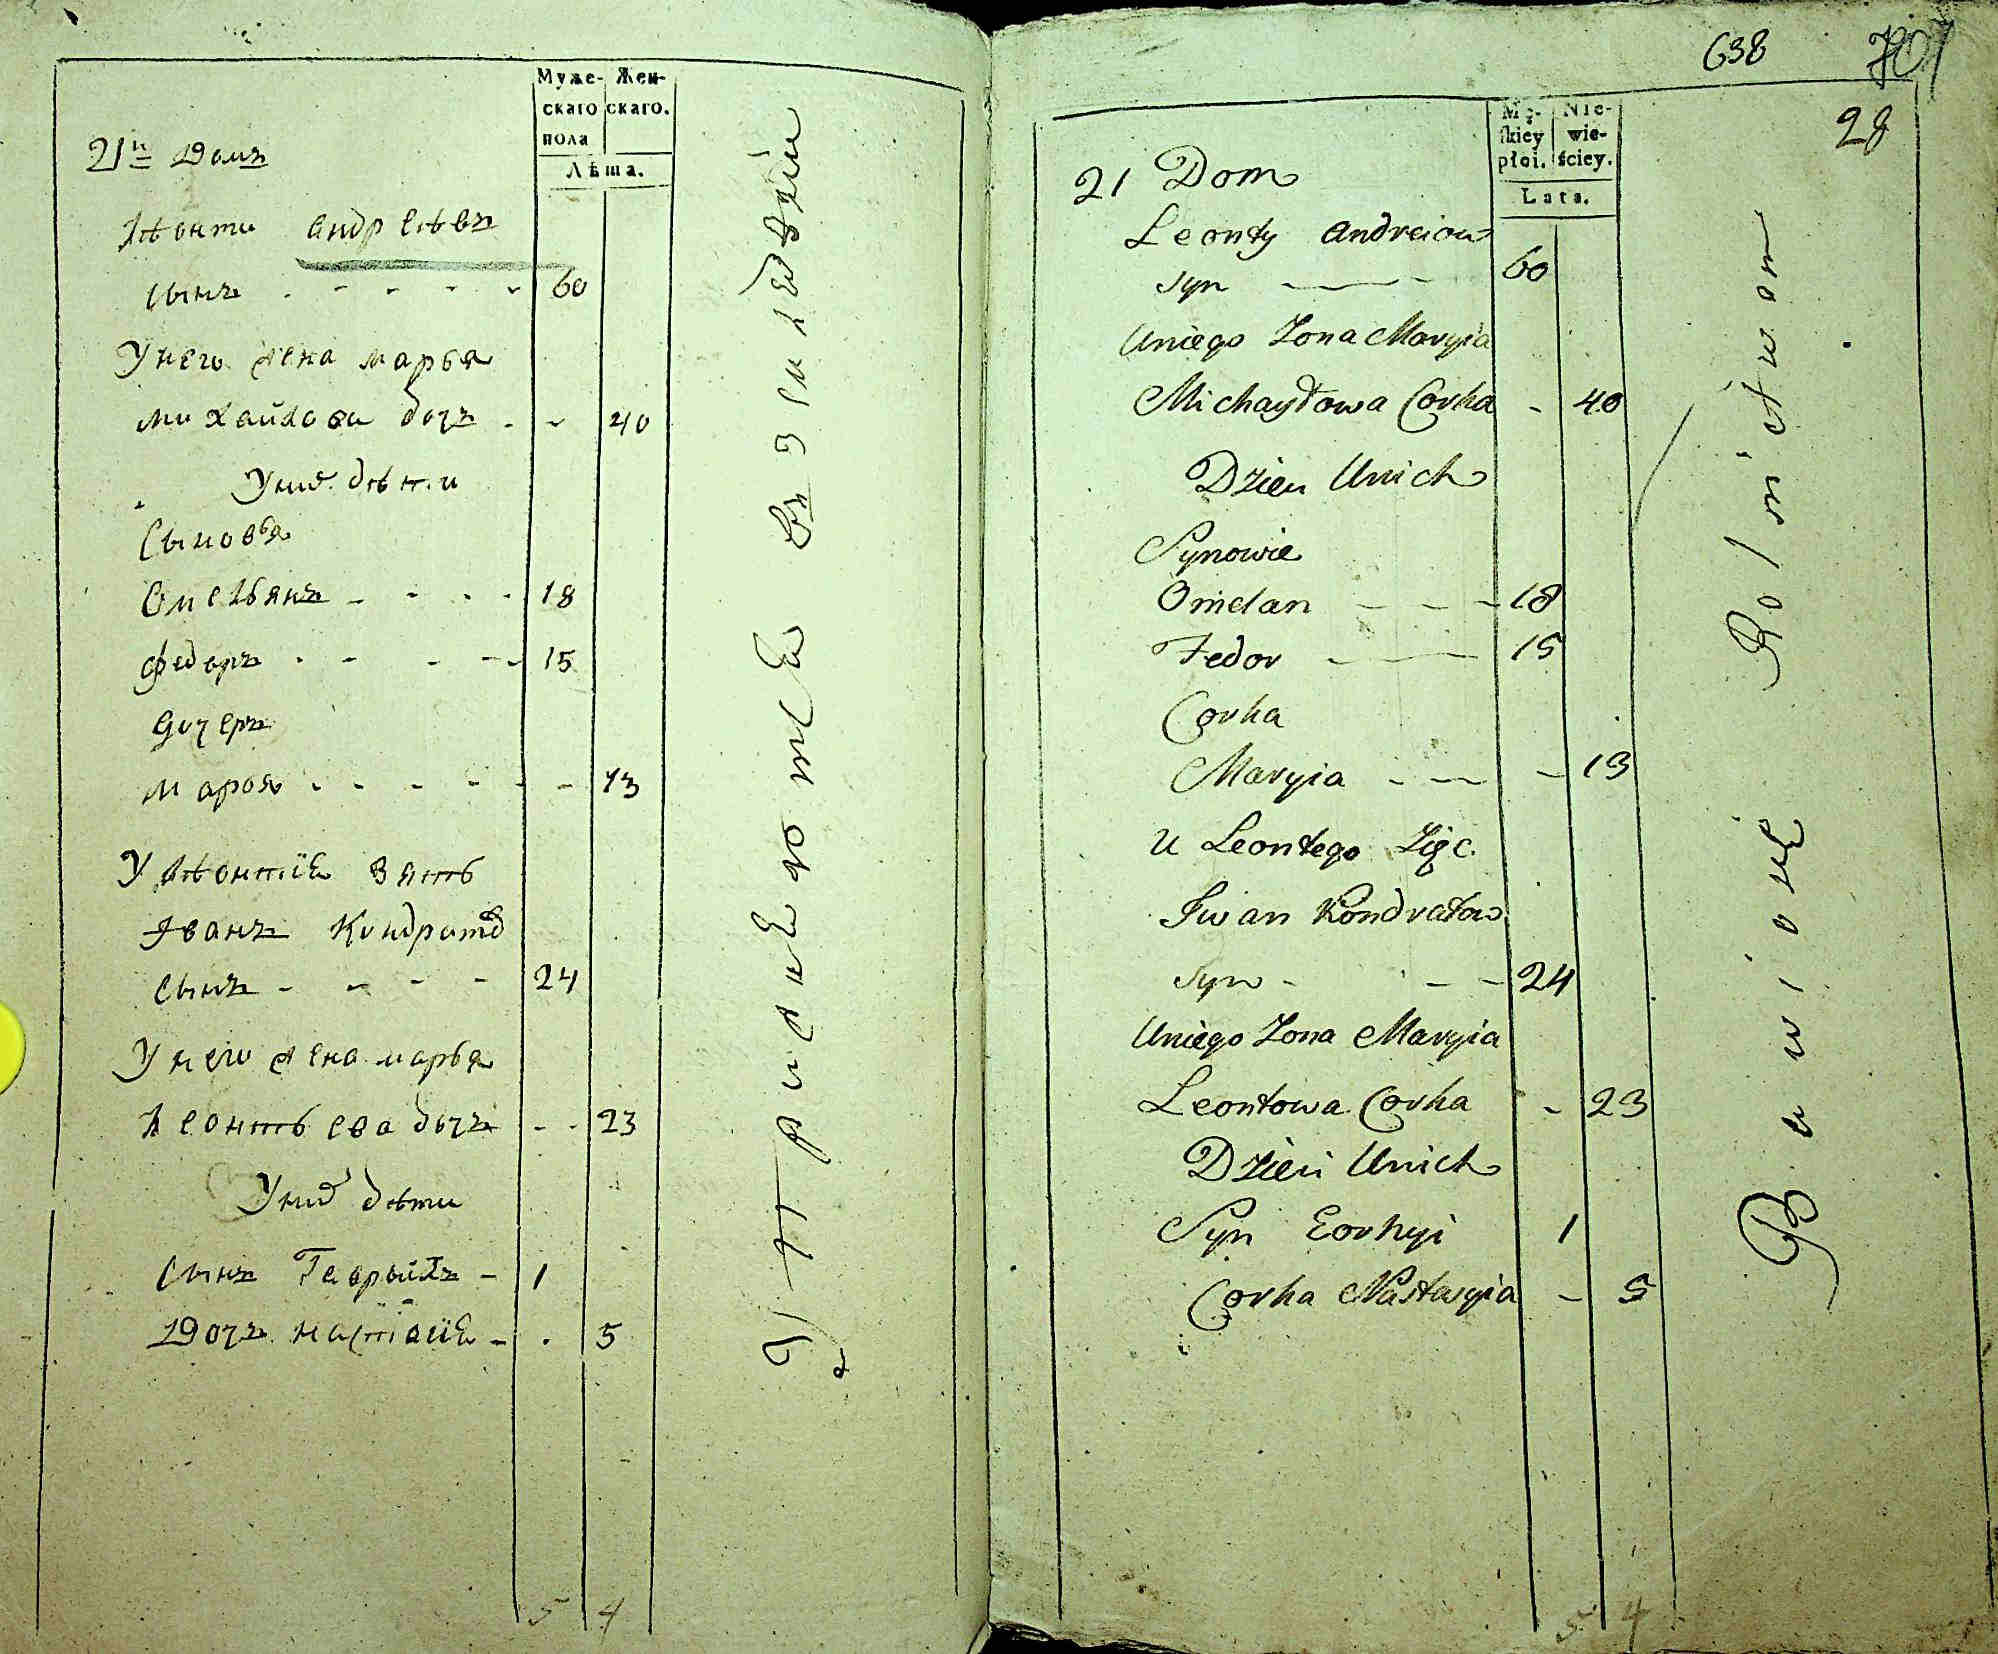 Муже-
скаго
пола
Жен-
скаго.
Лѣта.
21й Домъ
Лѣонти андрѣевъ
сынъ - - - - - 60
У него жена марья
михайлова дочь - - 40
У них дѣти
Сыновья
Омельянъ - - - - 18
Федоръ - - - - 15
Дочерь
Марья - - - - - - 13
У Лѣонтія зять
Иванъ Кондратов
сынъ - - - - 24
У него жена марья
Леонтьева дочь - - 23
У них дѣти
Сынъ Гаврыйлъ - 1
Дочь настасія - . 5
5 4
Упражняются въ земледѣліи
638
701
28
Mę-
skiey
płci.
Nie-
wie-
ściey.
Lata.
21 Dom
Leonty Andreiow
syn - - - 60
Uniego Zona Maryia
Michayłowa Corka - 40
Dzieci Unich
Synowie
Omelan - - - 18
Fedor - - 15
Corka
Maryia - - - 13
U Leontego Zięc
Iwan Kondratow
syn - - - 24
Uniego Zona Maryia
Leontowa Corka - 23
Dzieci Unich
Syn Eorhyi 1
Corka Nastasyia - 5
5 4
Bawiące Rolnictwom